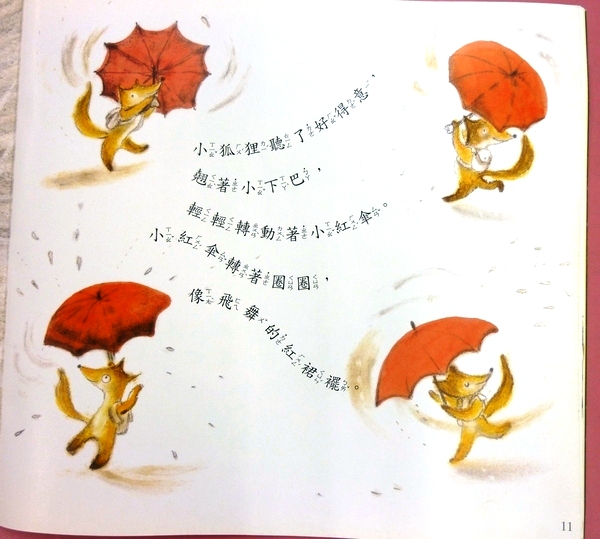 小狐狸聽了好得意，
翹著小下巴，
輕輕轉動著小紅傘。
小紅傘轉著圈圈，
像飛舞的紅裙襬。
11